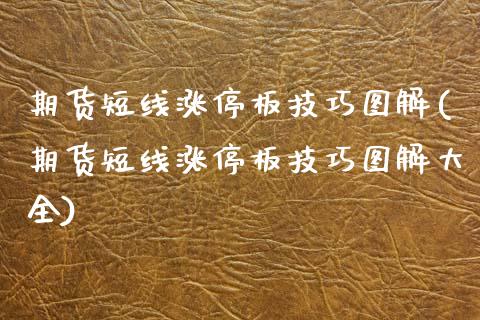 期货短线涨停板技巧图解(
期货短线涨停板技巧图解大
全)